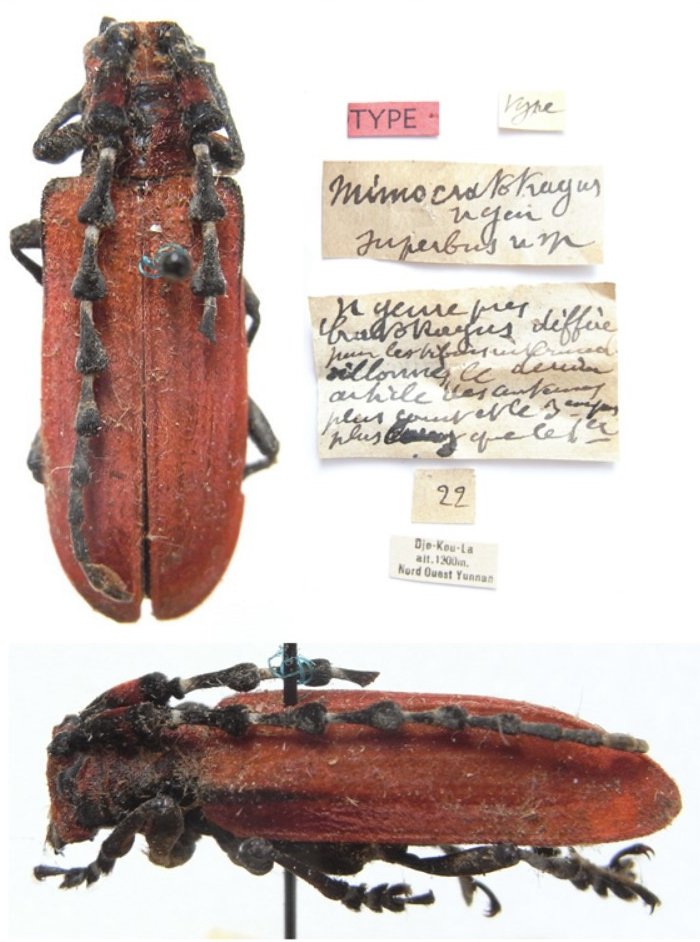 TYPE
Type
Mimocratotragus
n gen
superbus n sp
n genre pres
Cratotragus diffère
pour les
sillonné, le dernier
article des antennes
plus court et le 3
plus long que le 1er
22
Dje-Kou-La
alt. 1200m.
Nord Ouest Yunnan